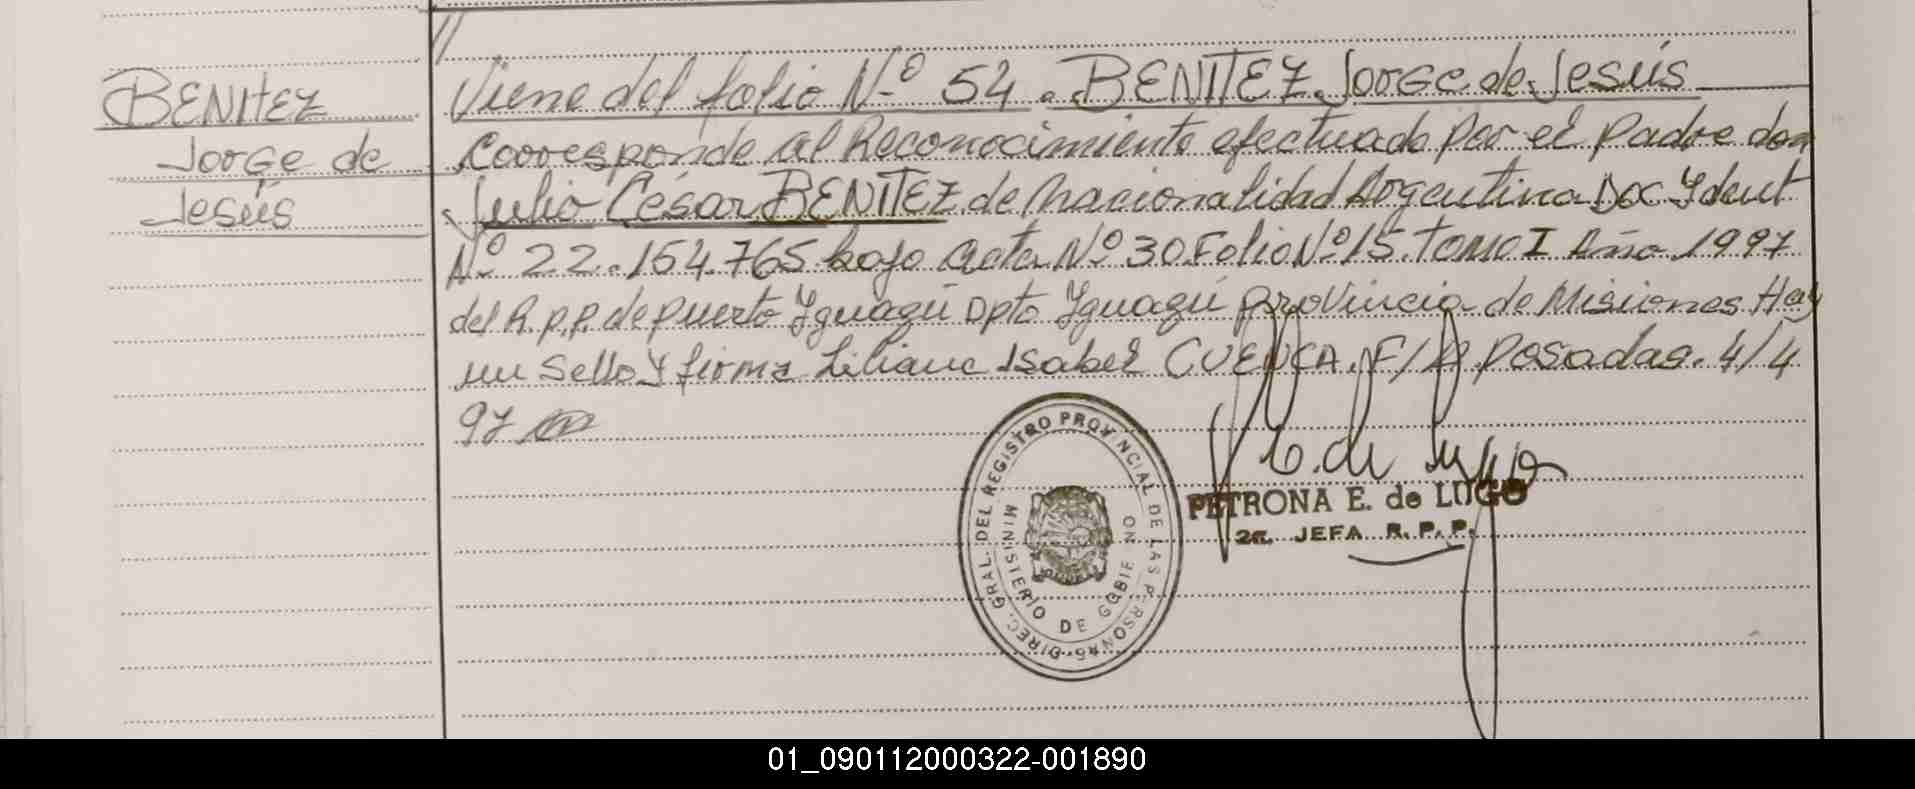 //
BENITEZ
Jorge de
Jesús
Viene del folio Nº 54. BENITEZ Jorge de Jesús
Corresponde al Reconocimiento efectuado por el padre don
Julio César BENITEZ de nacionalidad Argentina Doc Ydent
Nº 22.154.765 bajo acta Nº 30 Folio Nº 15. Tomo I Año 1997
del R.p.p. de puerto Yguazú Dpto Yguazú provincia de Misiones Hay
un Sello Y firma Liliana Isabel CUENCA. F/A posadas. 4/4
97
DIREC. GRAL. DEL REGISTRO PROVINCIAL DE LAS P RSONAS
MINISTERIO DE GOBIE NO
PETRONA E. de LUGO
2a. JEFA R.P.P.
01_090112000322-001890